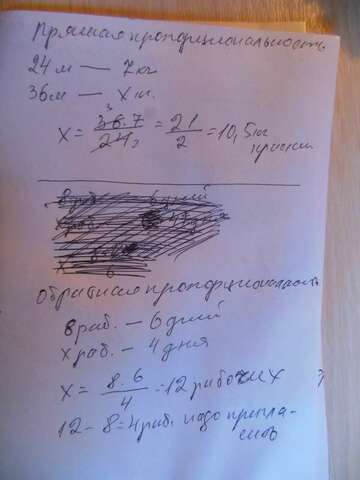 Прямая пропорциональность
24 м — 7 кг
36 м — x кг.
x = 36·7 / 24 = 21 / 2 = 10,5 кг
краски
Обратная пропорциональность
8 раб. — 6 дней
x раб. — 4 дня
x = 8·6 / 4 = 12 рабочих
12 - 8 = 4 раб. надо пригла-
сить